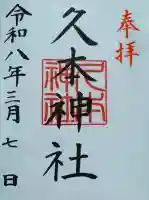 奉拝
久本神社
令和八年三月七日